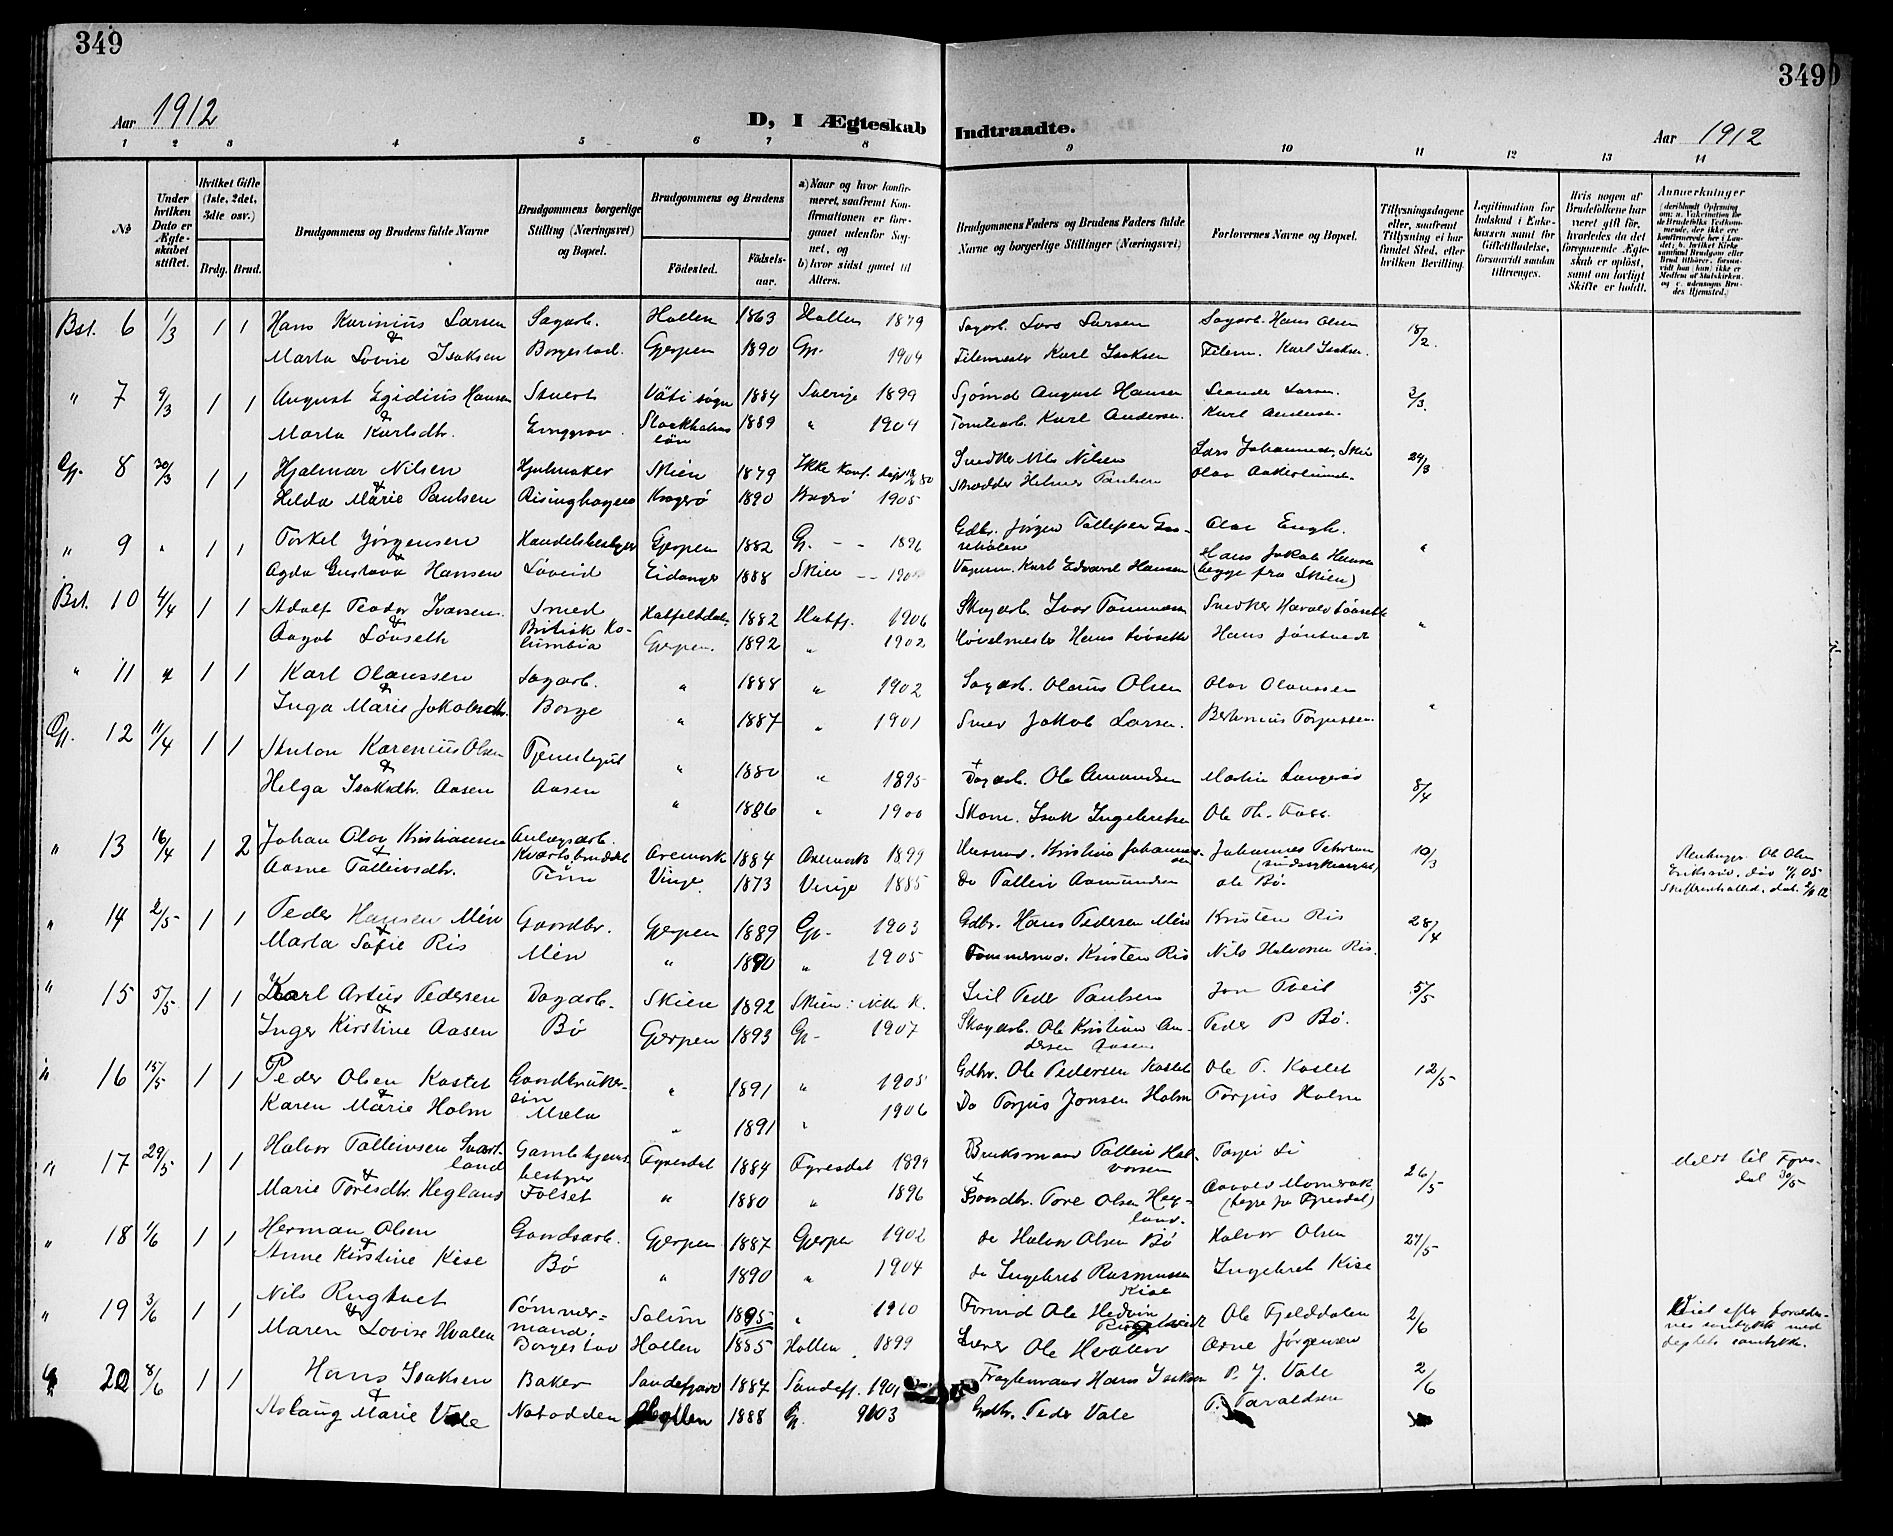 349
3490
Aar 1912
D, I Ægteskab Indtraadte.
Aar 1912
1 2 3 4 5 6 7 8 9 10 11 12 13 14
№
Under hvilken Dato er Ægteskabet stiftet.
Hvilket Gifte (1ste, 2det, 3die osv.)
Brdg. Brud.
Brudgommens og Brudens fulde Navne
Brudgommens borgerlige Stilling (Næringsvei) og Bopæl.
Brudgommens og Brudens
Fødested.
Fødselsaar.
a) Naar og hvor konfirmeret, saafremt Konfirmationen er foregaaet udenfor Sognet, og
b) hvor sidst gaaet til Alters.
Brudgommens Faders og Brudens Faders fulde Navne og borgerlige Stillinger (Næringsvei)
Forlovernes Navne og Bopæl.
Tillysningsdagene eller, saafremt Tillysning ei har fundet Sted, efter hvilken Bevilling.
Legitimation for Indskud i Enkekassen samt for Giftetilladelse, forsaavidt saadan tiltrænges.
Hvis nogen af Brudefolkene har været gift før, hvorledes da det foregaaende Ægteskab er opløst, samt om lovligt Skifte er holdt.
Anmerkninger
Bst. 6 1/3 1 1 Hans Karinius Larsen Sagarb. Hollen 1863 Hollen 1879 Sagarb. Lars Larsen Sagarb. Hans Olsen 18/2.
& Marta Lovise Isaksen Borgestad. Gjerpen 1890 Gp. 1904 Filemester Karl Isaksen Filem. Karl Isaksen.
" 7 9/3 1 1 August Egidius Hansen Stuert 1884 Sverige 1899 Sjømd August Hansen Leander Larsen 3/3.
& Marta Karlsdtr. Stockholms län 1889 " 1904 Tomtearb. Karl Andersen. Karl Andersen.
Gp. 8 30/3 1 1 Hjalmar Nilsen Hjulmaker Skien 1879 Ikke Konf. Snedker Nils Nilsen 24/3
& Hilda Marie Paulsen Risinghagen Kragerø 1890 Kragerø 1905 Skrædder Helmer Paulsen
" 9 " 1 1 Torkel Jørgensen Handelsbestyrer Gjerpen 1882 Gp. - - 1896 Gdbr. Jørgen Tollefsen Olav Engh. "
& Agda Gustava Hansen Løveid Eidanger 1888 Skien - - Karl Edvard Hansen Hans Jakob Hansen (begge fra Skien)
Bst. 10 4/4 1 1 Adolf Teodor Ivarsen Smed Hatfjelddal 1882 Hatfj. 1906 Skogarb. Ivar Tommasen Snedker Harald Løvseth "
& Aagot Løvseth Britisk Kolumbia Gjerpen. 1892 " 1902 Høvelmester Hans Løvseth Hans Jøntvedt
" 11 " 1 1 Karl Olaussen Sagarb. " 1888 " 1902 Sagarb. Olaus Olsen Olav Olaussen "
& Inga Marie Jakobsdtr. Borge " 1887 " 1901 Smed Jakob Larsen. Bertinius Torgussen.
Gp. 12 11/4 1 1 Anton Karenius Olsen Tjenestegut " 1880 " 1895 + Dagarb. Ole Amundsen Martin Langerød 8/4
& Helga Isaksdtr. Aasen Aasen " 1886 " 1900 Skom. Isak Ingebretsen Ole Th. Foss
" 13 16/4 1 2 Johan Olav Kristiansen Anlægsarb. Kvartsbruddet Aremark 1884 Aremark 1899 Husmd. Kristian Johannessen Johannes Petersen 10/3
& Aasne Tallevsdtr. Vinje 1873 Vinje 1885 Do Tallev Aamundsen Ole Bø. Stenhugger Ole Olsen
" 14 2/5 1 1 Peder Hansen Mén Gaardbr. Gjerpen 1889 Gp. 1903 Gdbr. Hans Pedersen Mén Kristen Ris 28/4
& Marta Sofie Ris Mén " 1890 " 1905 Tømmermd. Kristen Ris Nils Halvorsen Ris.
" 15 5/5 1 1 Karl Artur Pedersen Dagarb. Skien 1892 Skien: ikke K. Peder Paulsen Jon Tveit 5/5
& Inger Kirstine Aasen Bø Gjerpen 1893 Gp. 1907 Skogarb. Ole Kristian Andersen Aasen Peder P Bø.
" 16 15/5 1 1 Peder Olsen Kastet Gaardbrukersøn " 1891 " 1905 Gdbr. Ole Pedersen Kastet Ole P. Kastet 12/5
& Karen Marie Holm Mæla " 1891 " 1906 Do Torjus Jonsen Holm Torjus Holm
" 17 29/5 1 1 Halvor Tallevsen Svartland Gamlehjemsbestyrer Fyresdal 1884 Fyresdal 1899 Bruksmand Tallev Halvorsen Targei Li 26/5 Meldt til Fyresdal 30/5
& Marie Toresdtr. Hegland Folset " 1880 " 1896 + Gaardbr. Tore Olsen Hegland. Momrak (begge fra Fyresdal)
" 18 1/6 1 1 Herman Olsen Gaardsarb. Gjerpen 1887 Gjerpen 1902 do Halvor Olsen Bø Halvor Olsen 27/5
& Anne Kirstine Kise Bø " 1890 " 1904 do Ingebret Rasmussen Kise Ingebret Kise
" 19 3/6 1 1 Nils Rugtvet Tømmermand. Solum 1895 " 1910 Formd Ole Hedvin Rugtvedt Ole Fjelddalen 2/6 Viet efter forældrenes samtykke med deptets samtykke.
& Maren Lovise Hvalen Borgestad Hollen 1885 Hollen. 1899 Lærer Ole Hvalen Arne Jørgensen
" 20 8/6 1 1 Hans Isaksen Baker Sandefjord 1887 Sandefj. 1901 Hans Isaksen P. J. Vale 2/6
& Aslaug Marie Vale Notodden 1888 Gp. 1903 Gdbr. Peder Vale P. Taraldsen